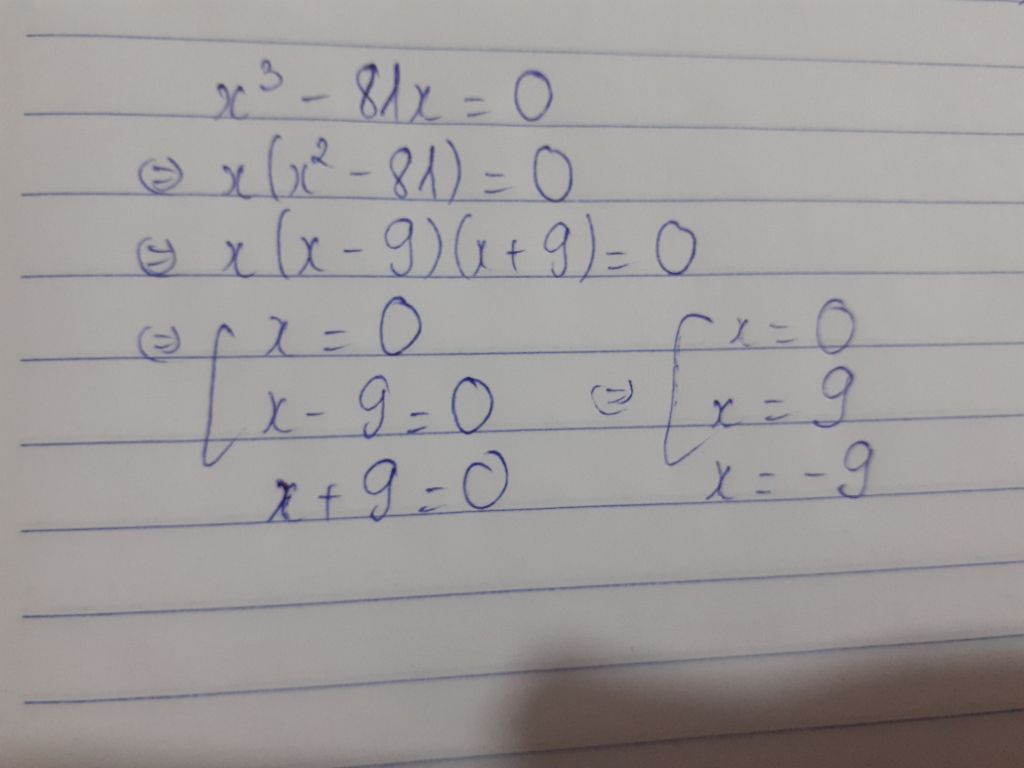 x³ - 81x = 0
⇔ x(x² - 81) = 0
⇔ x(x - 9)(x + 9) = 0
⇔ [ x = 0
x - 9 = 0
x + 9 = 0
⇔ [ x = 0
x = 9
x = -9